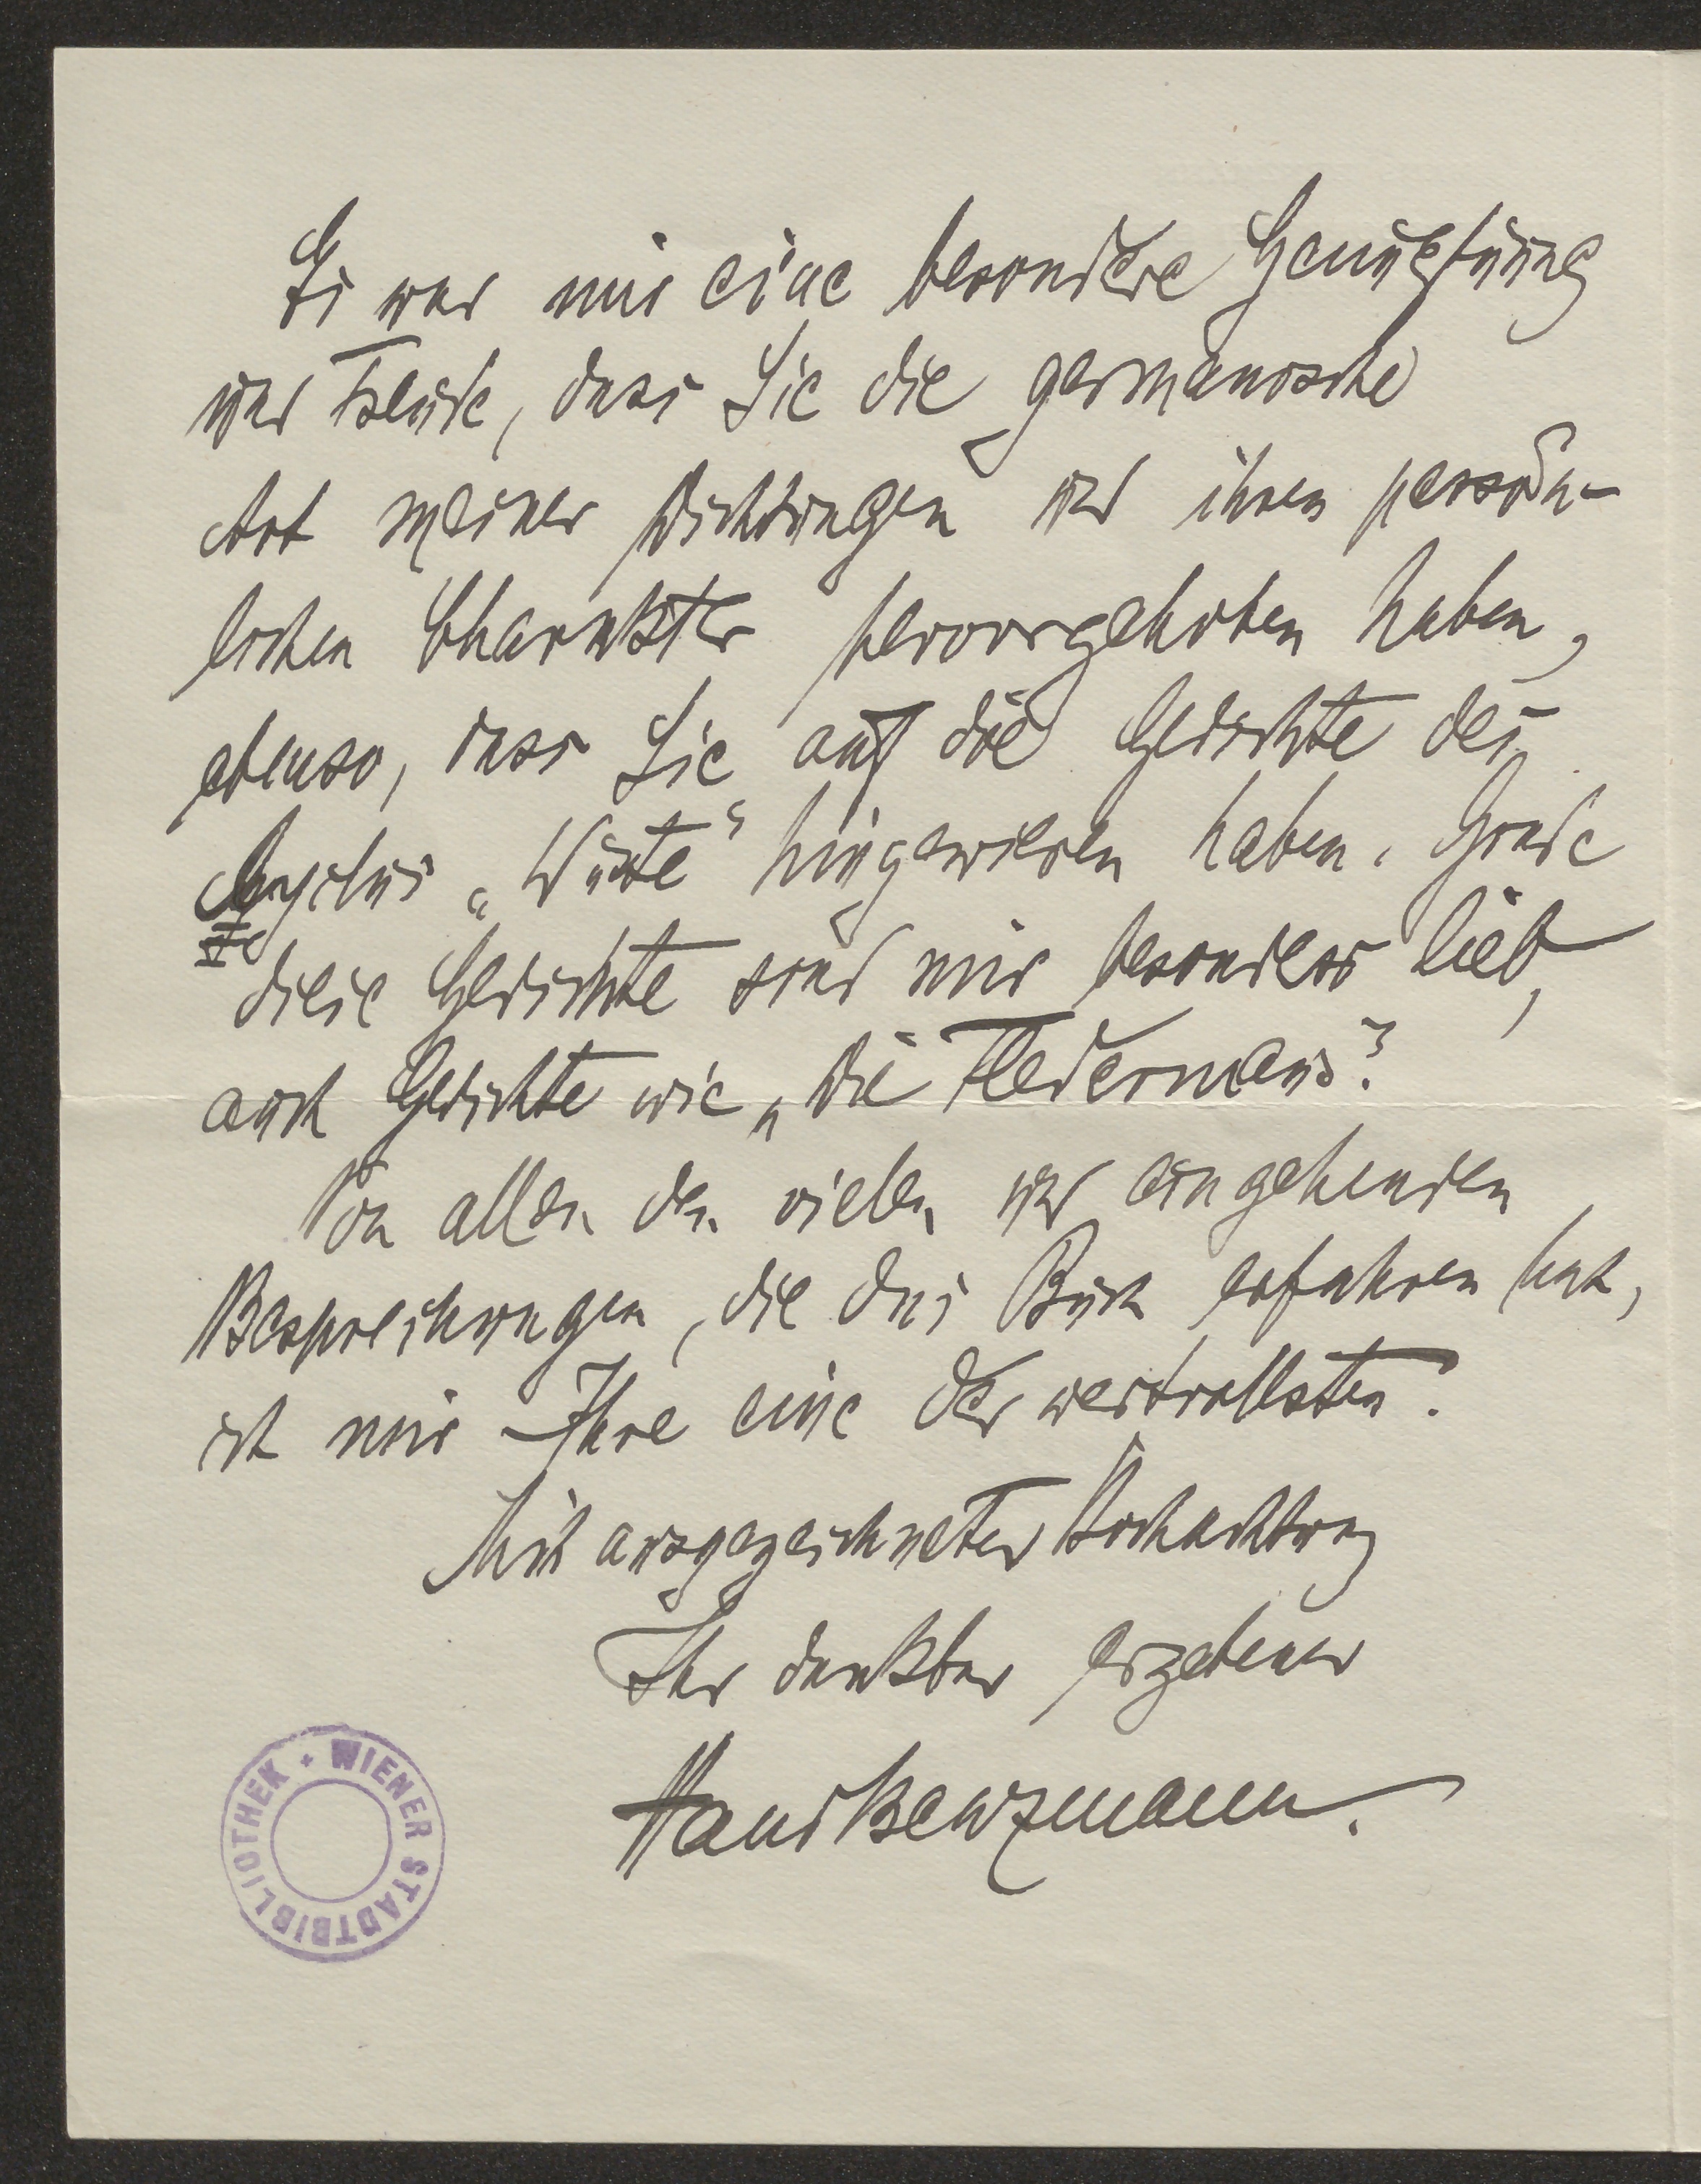 Es war mir eine besondere Genugtuung
und Freude, dass Sie die germanische
Art meiner Dichtungen und ihren persön-
lichen Charakter hervorgehoben haben,
ebenso, dass Sie auf die Gedichte des
Cyclus „Wüste" hingewiesen haben. Grade
diese Gedichte sind mir besonders lieb,
auch Gedichte wie „Die Fledermaus".
Von allen den vielen und eingehenden
Besprechungen, die das Buch erfahren hat,
ist mir Ihre eine der wertvollsten.
Mit ausgezeichneter Hochachtung
Ihr dankbar ergebener
Hans Benzmann.
WIENER STADTBIBLIOTHEK